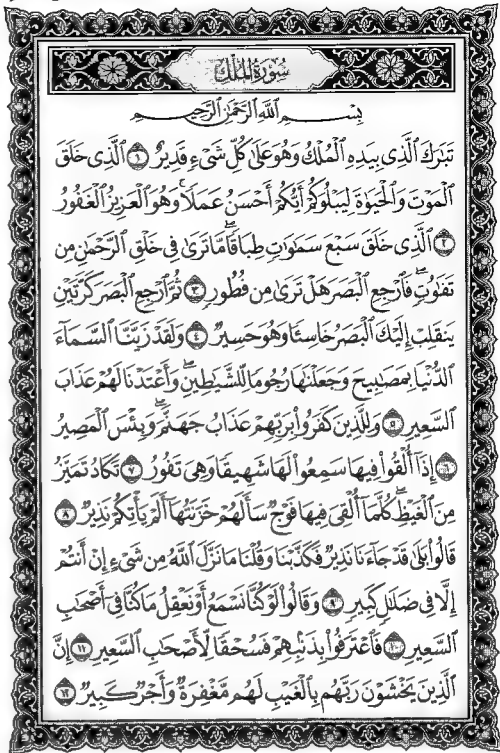 سُورَةُ الْمُلْكِ
بِسْمِ اللَّهِ الرَّحْمَٰنِ الرَّحِيمِ
تَبَٰرَكَ ٱلَّذِى بِيَدِهِ ٱلْمُلْكُ وَهُوَ عَلَىٰ كُلِّ شَىْءٍ قَدِيرٌ ١ ٱلَّذِى خَلَقَ
ٱلْمَوْتَ وَٱلْحَيَوٰةَ لِيَبْلُوَكُمْ أَيُّكُمْ أَحْسَنُ عَمَلًا ۚ وَهُوَ ٱلْعَزِيزُ ٱلْغَفُورُ
٢ ٱلَّذِى خَلَقَ سَبْعَ سَمَٰوَٰتٍ طِبَاقًا ۖ مَّا تَرَىٰ فِى خَلْقِ ٱلرَّحْمَٰنِ مِن
تَفَٰوُتٍ ۖ فَٱرْجِعِ ٱلْبَصَرَ هَلْ تَرَىٰ مِن فُطُورٍ ٣ ثُمَّ ٱرْجِعِ ٱلْبَصَرَ كَرَّتَيْنِ
يَنقَلِبْ إِلَيْكَ ٱلْبَصَرُ خَاسِئًا وَهُوَ حَسِيرٌ ٤ وَلَقَدْ زَيَّنَّا ٱلسَّمَآءَ
ٱلدُّنْيَا بِمَصَٰبِيحَ وَجَعَلْنَٰهَا رُجُومًا لِّلشَّيَٰطِينِ ۖ وَأَعْتَدْنَا لَهُمْ عَذَابَ
ٱلسَّعِيرِ ٥ وَلِلَّذِينَ كَفَرُوا۟ بِرَبِّهِمْ عَذَابُ جَهَنَّمَ ۖ وَبِئْسَ ٱلْمَصِيرُ
٦ إِذَآ أُلْقُوا۟ فِيهَا سَمِعُوا۟ لَهَا شَهِيقًا وَهِىَ تَفُورُ ٧ تَكَادُ تَمَيَّزُ
مِنَ ٱلْغَيْظِ ۖ كُلَّمَآ أُلْقِىَ فِيهَا فَوْجٌ سَأَلَهُمْ خَزَنَتُهَآ أَلَمْ يَأْتِكُمْ نَذِيرٌ ٨
قَالُوا۟ بَلَىٰ قَدْ جَآءَنَا نَذِيرٌ فَكَذَّبْنَا وَقُلْنَا مَا نَزَّلَ ٱللَّهُ مِن شَىْءٍ إِنْ أَنتُمْ
إِلَّا فِى ضَلَٰلٍ كَبِيرٍ ٩ وَقَالُوا۟ لَوْ كُنَّا نَسْمَعُ أَوْ نَعْقِلُ مَا كُنَّا فِىٓ أَصْحَٰبِ
ٱلسَّعِيرِ ١٠ فَٱعْتَرَفُوا۟ بِذَنۢبِهِمْ فَسُحْقًا لِّأَصْحَٰبِ ٱلسَّعِيرِ ١١ إِنَّ
ٱلَّذِينَ يَخْشَوْنَ رَبَّهُم بِٱلْغَيْبِ لَهُم مَّغْفِرَةٌ وَأَجْرٌ كَبِيرٌ ١٢